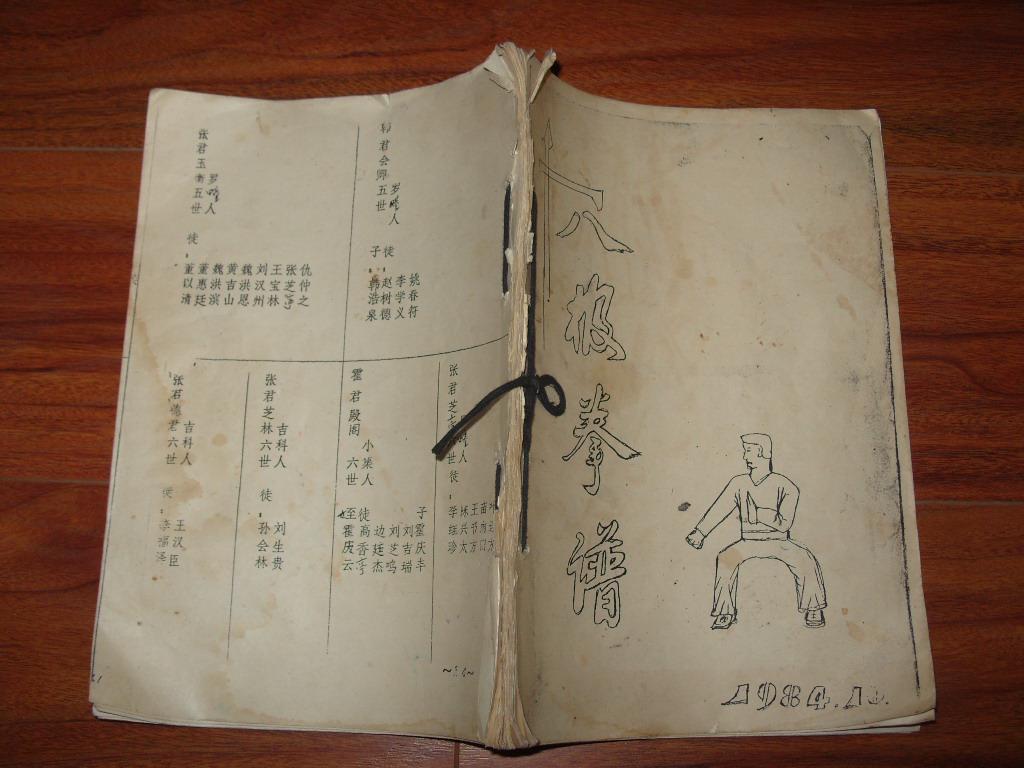 八极拳谱
1984.10.
君会卿五世
罗疃人
徒:
姚春符
李学义
赵树德
子
韩浩泉
张君玉衡五世
罗疃人
徒:
仇仲之
张芝亭
王宝林
刘汉州
魏洪恩
黄吉山
魏洪滨
董惠廷
董以清
张君芝
世
人
徒:
林兴太
霍君殿阁
六世
小集人
子霍庆丰
刘吉瑞
刘芝鸣
边廷杰
徒高香亭
侄霍庆云
张君芝林六世
吉科人
徒:
刘生贵
孙会林
张君德君六世
吉科人
徒:
王汉臣
李福泽